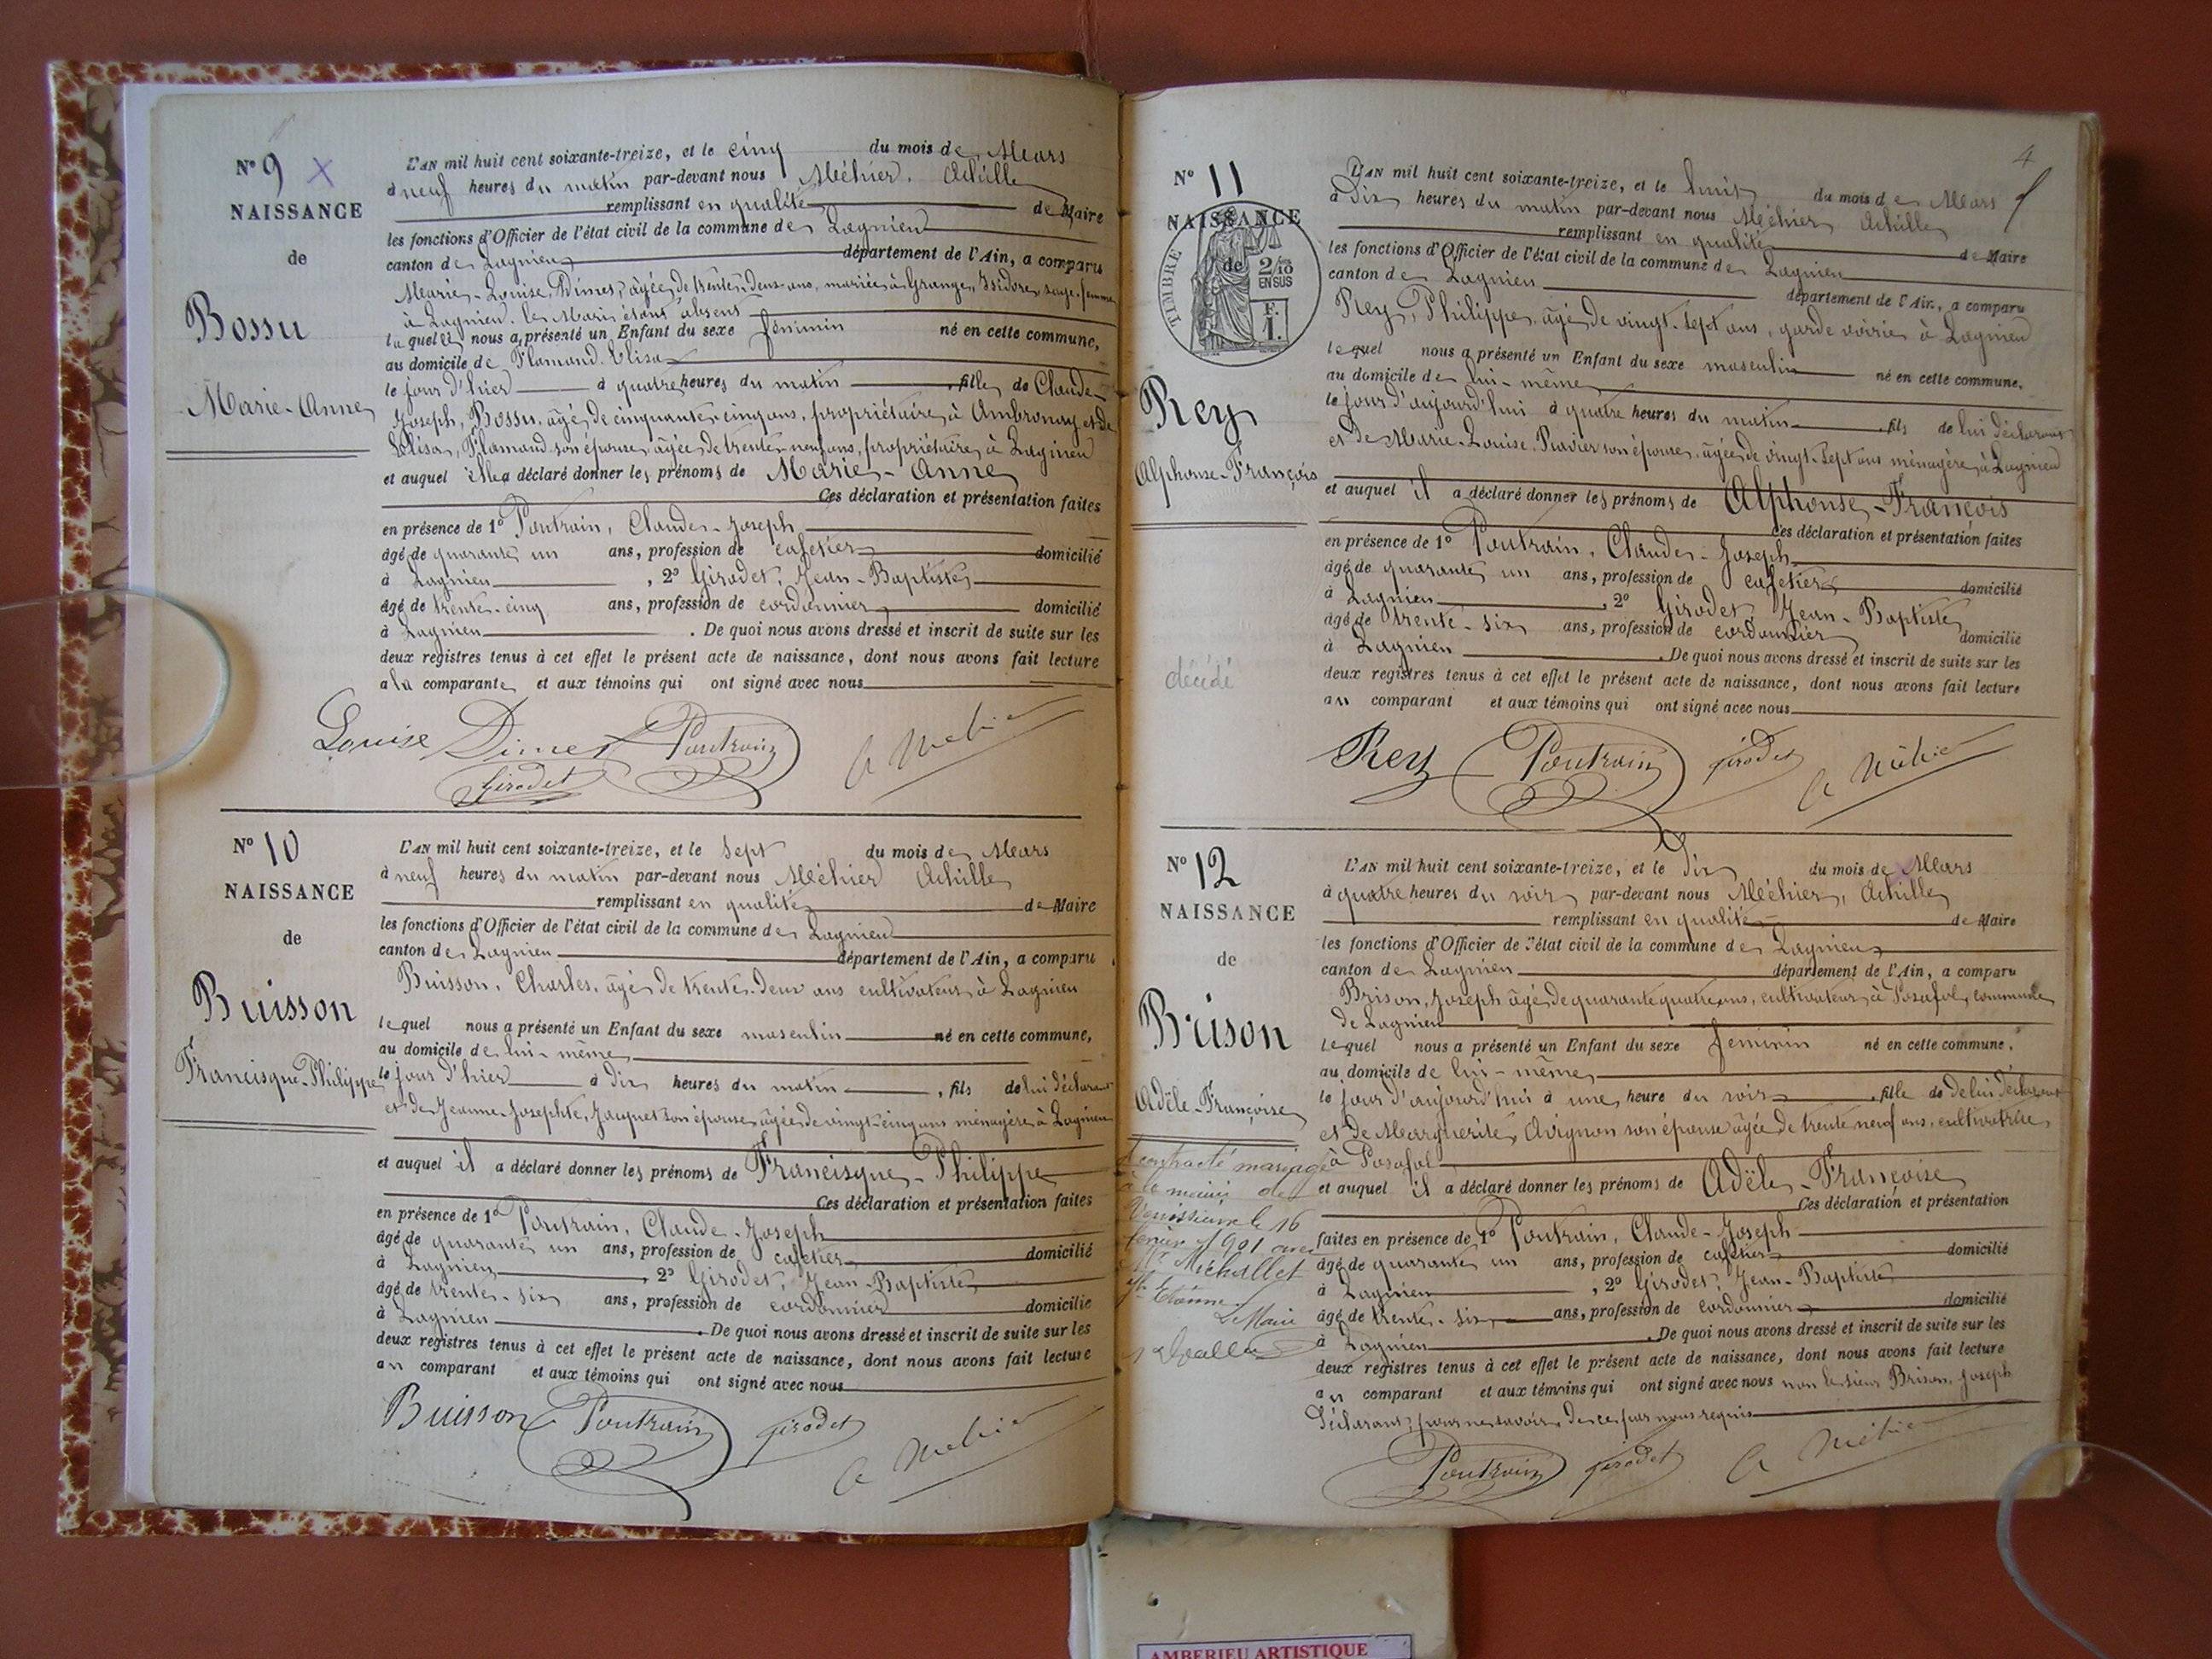 N° 9 X
NAISSANCE
de
Bossu
Marie-Anne
L'AN mil huit cent soixante-treize, et le cinq du mois de Mars
à neuf heures du matin par-devant nous Méhier, Achille
remplissant en qualité de Maire
les fonctions d'Officier de l'état civil de la commune de Lagnieu
canton de Lagnieu département de l'Ain, a comparu
Marie-Louise, Dimes, âgée de trente-deux ans, mariée à Grange, Isidore, sage-femme
à Lagnieu, le Mari étant absent
laquelle nous a présenté un Enfant du sexe féminin né en cette commune,
au domicile de Flamand, Elisa
le jour d'hier à quatre heures du matin, fille de Claude
Joseph, Bossu, âgé de cinquante-cinq ans, propriétaire à Ambronay et de
Elisa, Flamand son épouse, âgée de trente-neuf ans, propriétaire à Lagnieu
et auquel elle a déclaré donner les prénoms de Marie-Anne
Ces déclaration et présentation faites
en présence de 1° Poutrain, Claude-Joseph
âgé de quarante un ans, profession de cafetier domicilié
à Lagnieu, 2° Girodet, Jean-Baptiste
âgé de trente-cinq ans, profession de cordonnier domicilié
à Lagnieu. De quoi nous avons dressé et inscrit de suite sur les
deux registres tenus à cet effet le présent acte de naissance, dont nous avons fait lecture
a la comparante et aux témoins qui ont signé avec nous
Louise Dimes Poutrain A Méhier
Girodet
N° 10
NAISSANCE
de
Buisson
Francisque-Philippe
L'AN mil huit cent soixante-treize, et le sept du mois de Mars
à neuf heures du matin par-devant nous Méhier Achille
remplissant en qualité de Maire
les fonctions d'Officier de l'état civil de la commune de Lagnieu
canton de Lagnieu département de l'Ain, a comparu
Buisson, Charles, âgé de trente-deux ans cultivateur à Lagnieu
lequel nous a présenté un Enfant du sexe masculin né en cette commune,
au domicile de lui-même
le jour d'hier à dix heures du matin, fils de lui déclarant
et de Jeanne-Josephte, Jacquet son épouse, âgée de vingt-cinq ans ménagère à Lagnieu
et auquel il a déclaré donner les prénoms de Francisque-Philippe
Ces déclaration et présentation faites
en présence de 1° Poutrain, Claude-Joseph
âgé de quarante un ans, profession de cafetier domicilié
à Lagnieu, 2° Girodet, Jean-Baptiste
âgé de trente-six ans, profession de cordonnier domicilié
à Lagnieu. De quoi nous avons dressé et inscrit de suite sur les
deux registres tenus à cet effet le présent acte de naissance, dont nous avons fait lecture
au comparant et aux témoins qui ont signé avec nous
Buisson Poutrain Girodet A Méhier
4
N° 11
NAISSANCE
de
TIMBRE 2/10 EN SUS F. 1.
Rey
Alphonse-François
décédé
L'AN mil huit cent soixante-treize, et le huit du mois de Mars
à Dix heures du matin par-devant nous Méhier Achille
remplissant en qualité de Maire
les fonctions d'Officier de l'état civil de la commune de Lagnieu
canton de Lagnieu département de l'Ain, a comparu
Rey, Philippe, âgé de vingt-sept ans, garde voirie à Lagnieu
lequel nous a présenté un Enfant du sexe masculin né en cette commune,
au domicile de lui-même
le jour d'aujourd'hui à quatre heures du matin, fils de lui déclarant
et de Marie-Louise, Ravier son épouse, âgée de vingt-sept ans ménagère à Lagnieu
et auquel il a déclaré donner les prénoms de Alphonse-François
Ces déclaration et présentation faites
en présence de 1° Poutrain, Claude-Joseph
âgé de quarante un ans, profession de cafetier domicilié
à Lagnieu, 2° Girodet, Jean-Baptiste
âgé de trente-six ans, profession de cordonnier domicilié
à Lagnieu. De quoi nous avons dressé et inscrit de suite sur les
deux registres tenus à cet effet le présent acte de naissance, dont nous avons fait lecture
au comparant et aux témoins qui ont signé avec nous
Rey Poutrain Girodet A Méhier
N° 12
NAISSANCE
de
Brison
Adèle-Françoise
contracté mariage
à la mairie de
Vénissieux le 16
février 1901 avec
Mr Michallet
Etienne
Le Maire
L'AN mil huit cent soixante-treize, et le dix du mois de Mars
à quatre heures du soir par-devant nous Méhier, Achille
remplissant en qualité de Maire
les fonctions d'Officier de l'état civil de la commune de Lagnieu
canton de Lagnieu département de l'Ain, a comparu
Brison, Joseph âgé de quarante quatre ans, cultivateur à Posafol, commune
de Lagnieu
lequel nous a présenté un Enfant du sexe féminin né en cette commune,
au domicile de lui-même
le jour d'aujourd'hui à une heure du soir, fille de de lui déclarant
et de Marguerite, Avignon son épouse âgée de trente neuf ans, cultivatrice
à Posafol
et auquel il a déclaré donner les prénoms de Adèle-Françoise
Ces déclaration et présentation
faites en présence de 1° Poutrain, Claude-Joseph
âgé de quarante un ans, profession de cafetier domicilié
à Lagnieu, 2° Girodet, Jean-Baptiste
âgé de trente-six ans, profession de cordonnier domicilié
à Lagnieu. De quoi nous avons dressé et inscrit de suite sur les
deux registres tenus à cet effet le présent acte de naissance, dont nous avons fait lecture
au comparant et aux témoins qui ont signé avec nous non le sieur Brison, Joseph
déclarant, pour ne savoir, de ce par nous requis
Poutrain Girodet A Méhier
AMBERIEU ARTISTIQUE